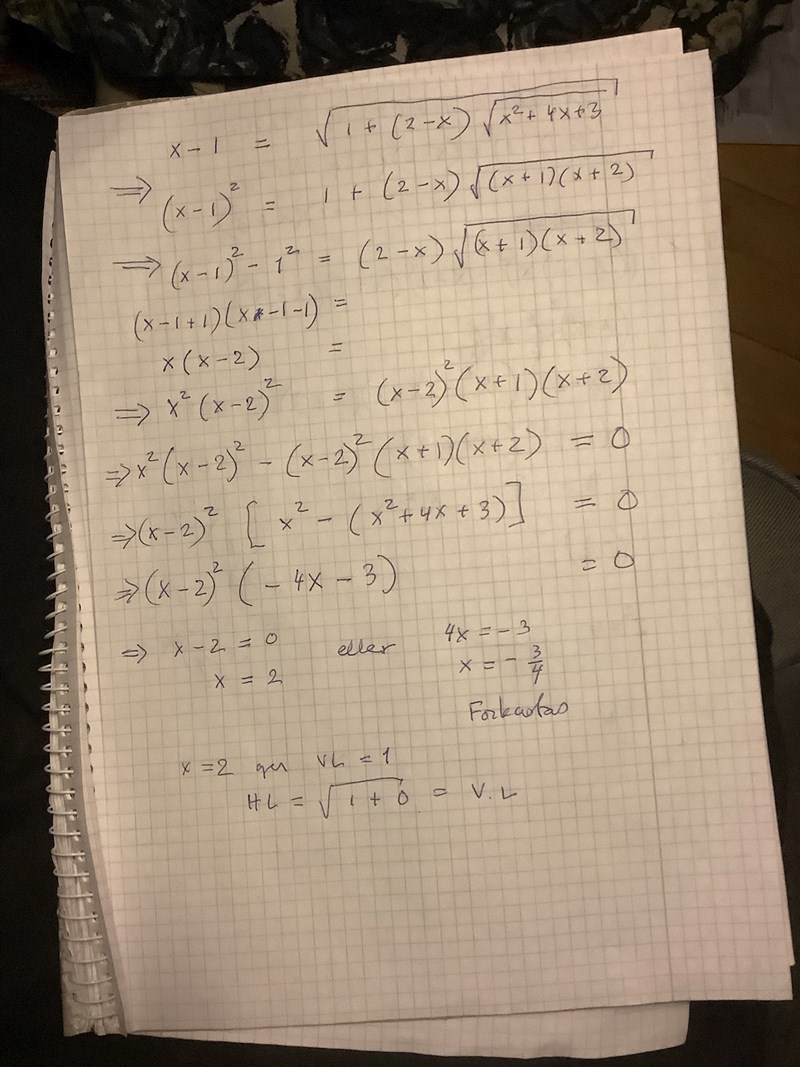 x - 1 = √(1 + (2-x) √(x² + 4x + 3))
⇒ (x-1)² = 1 + (2-x) √((x+1)(x+2))
⇒ (x-1)² - 1² = (2-x) √((x+1)(x+2))
(x-1+1)(x-1-1) =
x(x-2) =
⇒ x²(x-2)² = (x-2)²(x+1)(x+2)
⇒ x²(x-2)² - (x-2)²(x+1)(x+2) = 0
⇒ (x-2)² [x² - (x²+4x+3)] = 0
⇒ (x-2)² (-4x-3) = 0
⇒ x-2 = 0 eller 4x = -3
x = 2 x = -3/4
Forkastas
x = 2 ger VL = 1
HL = √(1+0) = V.L